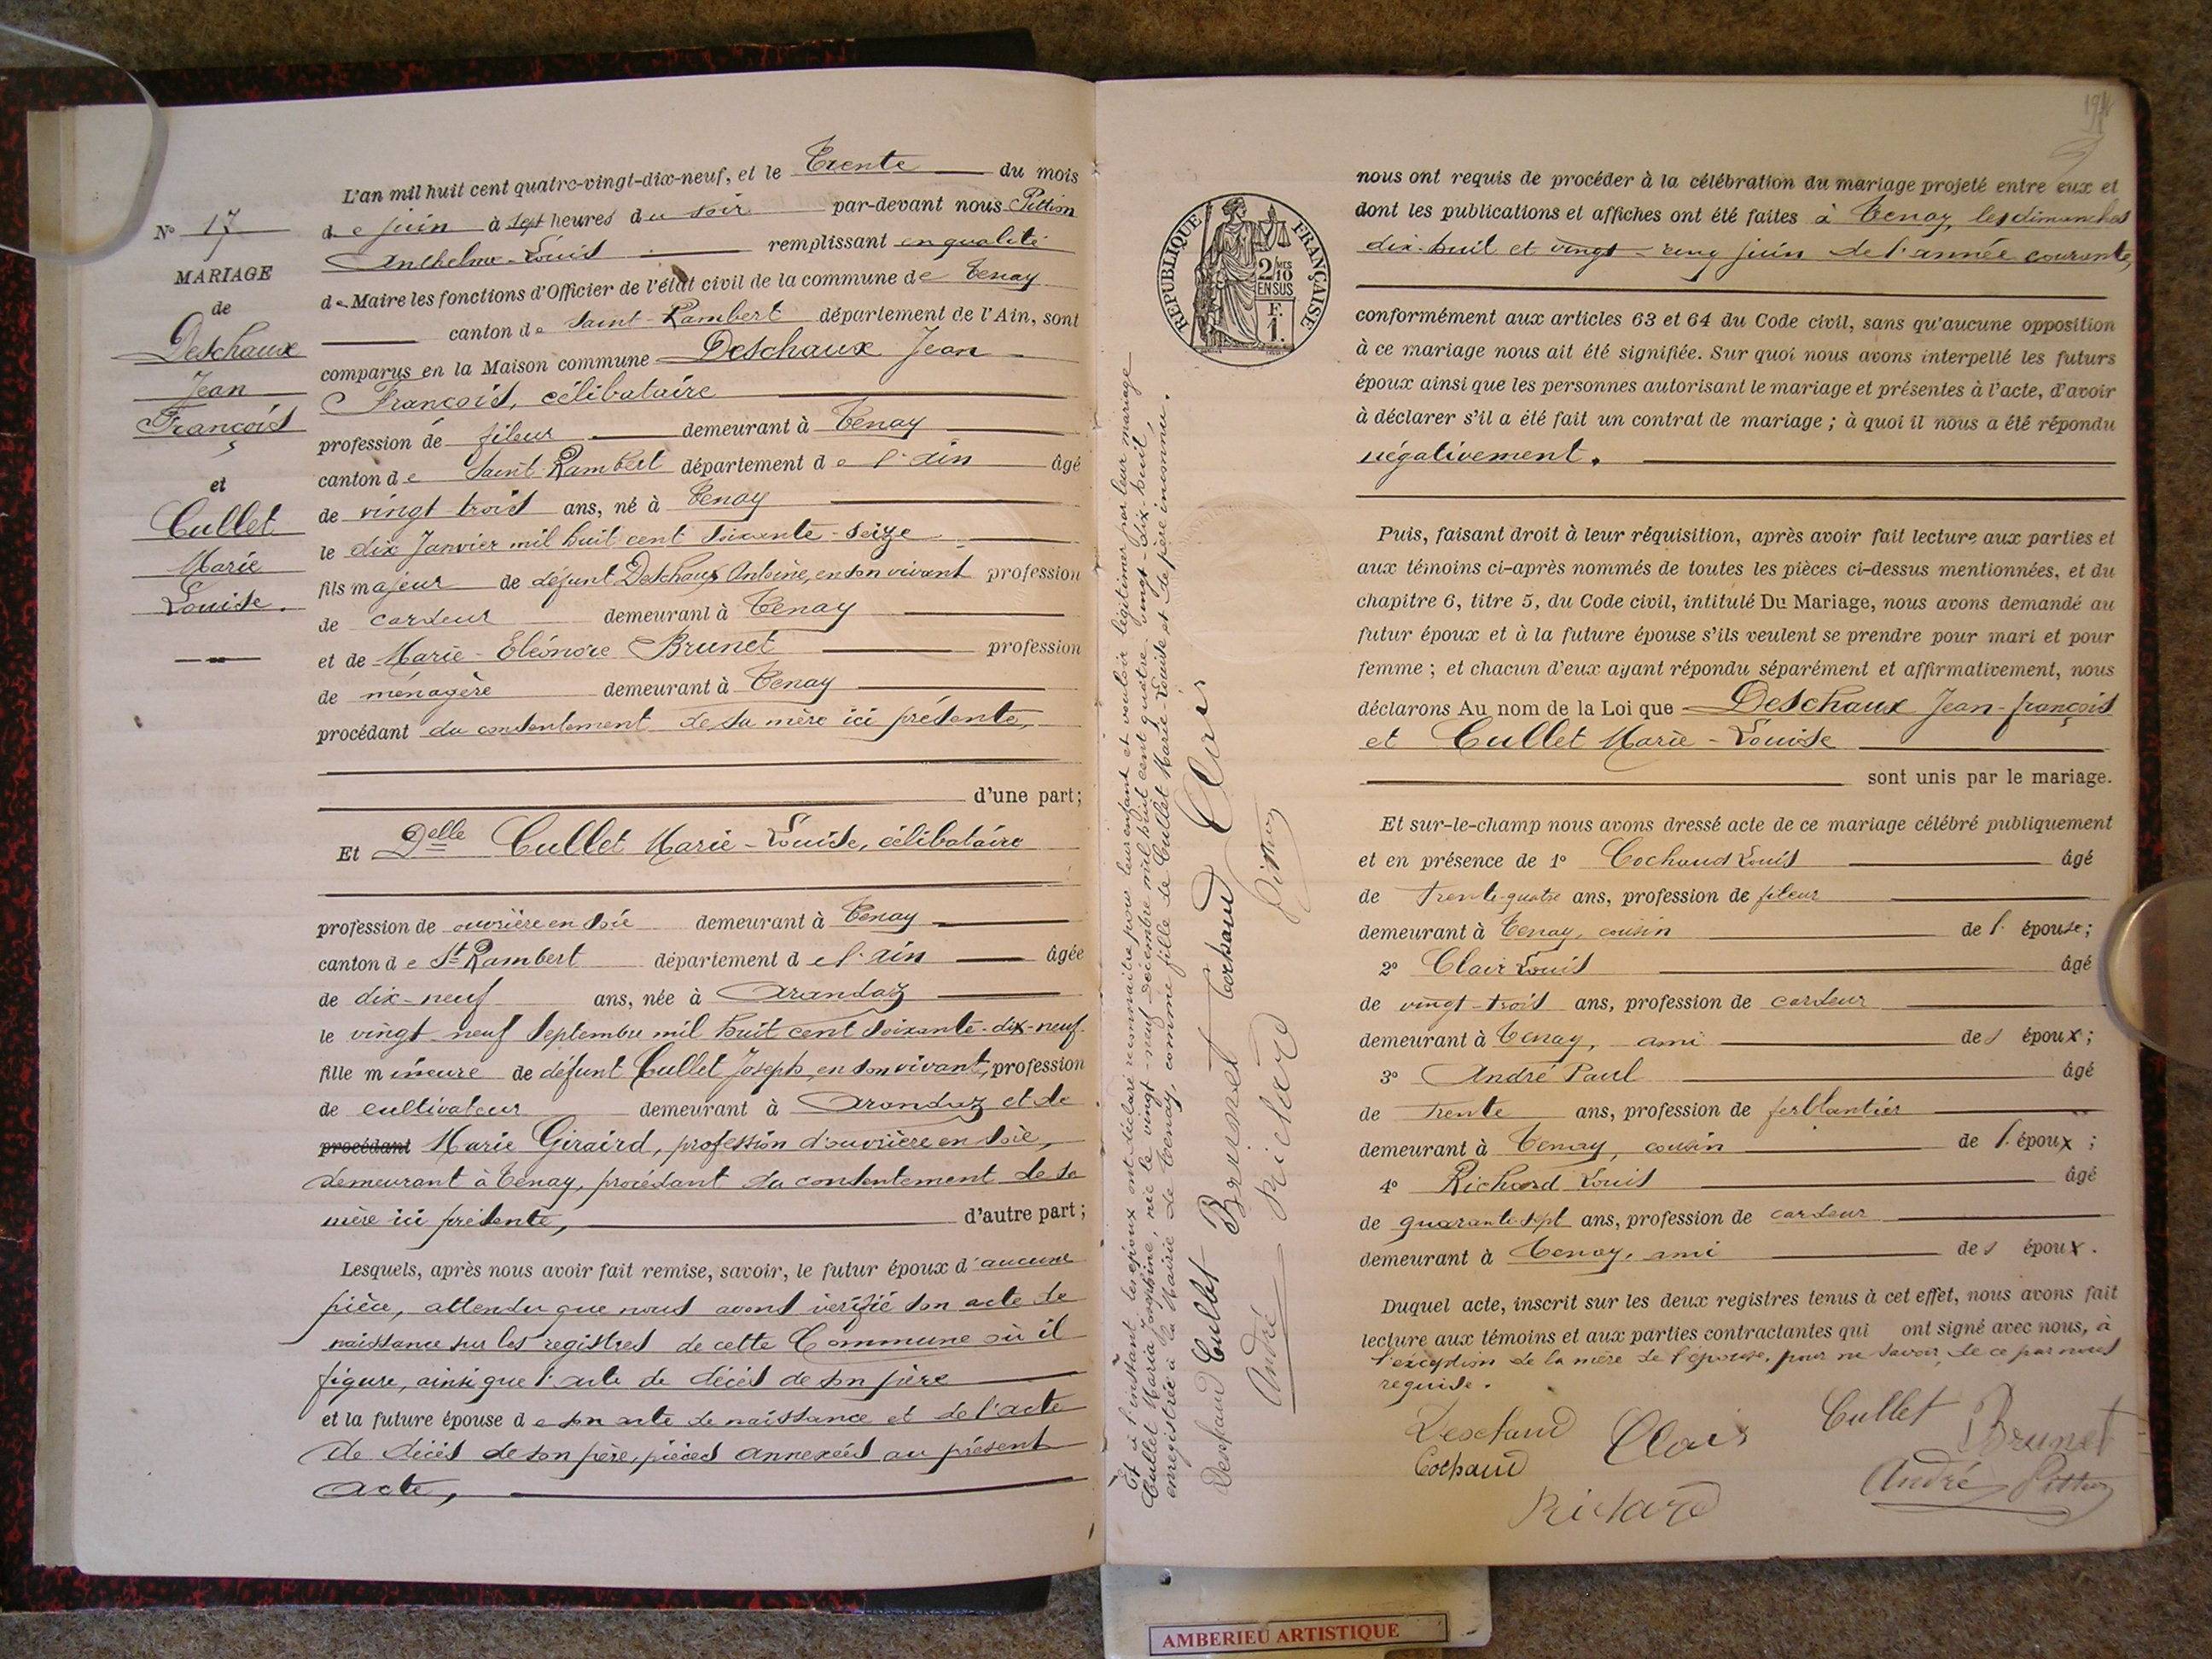 N° 17
MARIAGE
de
Deschaux
Jean
François
et
Cullet
Marie
Louise.
L'an mil huit cent quatre-vingt-dix-neuf, et le Trente du mois
de juin à sept heures du soir par-devant nous Pittion
Anthelme-Louis remplissant en qualité
de Maire les fonctions d'Officier de l'état civil de la commune de Tenay
canton de Saint-Rambert département de l'Ain, sont
comparus en la Maison commune Deschaux Jean
François, célibataire
profession de fileur demeurant à Tenay
canton de Saint-Rambert département de l'ain âgé
de vingt trois ans, né à Tenay
le dix Janvier mil huit cent soixante-seize
fils majeur de défunt Deschaux Antoine, en son vivant profession
de cardeur demeurant à Tenay
et de Marie-Eléonore Brunet profession
de ménagère demeurant à Tenay
procédant du consentement de sa mère ici présente,
d'une part;
Et Delle Cullet Marie-Louise, célibataire
profession de ouvrière en soie demeurant à Tenay
canton de St Rambert département de l'ain âgée
de dix-neuf ans, née à Arandaz
le vingt-neuf Septembre mil huit cent soixante-dix-neuf
fille mineure de défunt Cullet Joseph, en son vivant, profession
de cultivateur demeurant à Arandaz et de
procédant Marie Giraird, profession d'ouvrière en soie,
demeurant à Tenay, procédant du consentement de sa
mère ici présente, d'autre part;
Lesquels, après nous avoir fait remise, savoir, le futur époux d'aucune
pièce, attendu que nous avons vérifié son acte de
naissance sur les registres de cette Commune où il
figure, ainsi que l'acte de décès de son père
et la future épouse de son acte de naissance et de l'acte
de décès de son père, pièces annexées au présent
acte,
Et à l'instant les époux ont déclaré reconnaître pour leur enfant et vouloir légitimer par leur mariage
Cullet Maria Joséphine, née le vingt-neuf décembre mil huit cent quatre-vingt-dix-huit,
enregistrée à la Mairie de Tenay, comme fille de Cullet Marie-Louise et de père inconnu.
Deschaud Cullet Brunet Cochaud Clair
André Richard Pittion
REPUBLIQUE FRANÇAISE
2/10 MES
EN SUS
F.
1.
194
nous ont requis de procéder à la célébration du mariage projeté entre eux et
dont les publications et affiches ont été faites à Tenay, les dimanches
dix-huit et vingt-cinq juin de l'année courante,
conformément aux articles 63 et 64 du Code civil, sans qu'aucune opposition
à ce mariage nous ait été signifiée. Sur quoi nous avons interpellé les futurs
époux ainsi que les personnes autorisant le mariage et présentes à l'acte, d'avoir
à déclarer s'il a été fait un contrat de mariage ; à quoi il nous a été répondu
négativement.
Puis, faisant droit à leur réquisition, après avoir fait lecture aux parties et
aux témoins ci-après nommés de toutes les pièces ci-dessus mentionnées, et du
chapitre 6, titre 5, du Code civil, intitulé Du Mariage, nous avons demandé au
futur époux et à la future épouse s'ils veulent se prendre pour mari et pour
femme ; et chacun d'eux ayant répondu séparément et affirmativement, nous
déclarons Au nom de la Loi que Deschaux Jean-françois
et Cullet Marie-Louise
sont unis par le mariage.
Et sur-le-champ nous avons dressé acte de ce mariage célébré publiquement
et en présence de 1° Cochaud Louis âgé
de trente-quatre ans, profession de fileur
demeurant à Tenay, cousin de l'épouse;
2° Clair Louis âgé
de vingt-trois ans, profession de cardeur
demeurant à Tenay, ami des époux;
3° André Paul âgé
de trente ans, profession de ferblantier
demeurant à Tenay, cousin de l'époux ;
4° Richard Louis âgé
de quarante-sept ans, profession de cardeur
demeurant à Tenay, ami des époux.
Duquel acte, inscrit sur les deux registres tenus à cet effet, nous avons fait
lecture aux témoins et aux parties contractantes qui ont signé avec nous, à
l'exception de la mère de l'épouse, pour ne savoir, de ce par nous
requise.
Deschaud Clair Cullet Brunet
Cochaud André Pittion
Richard
AMBERIEU ARTISTIQUE